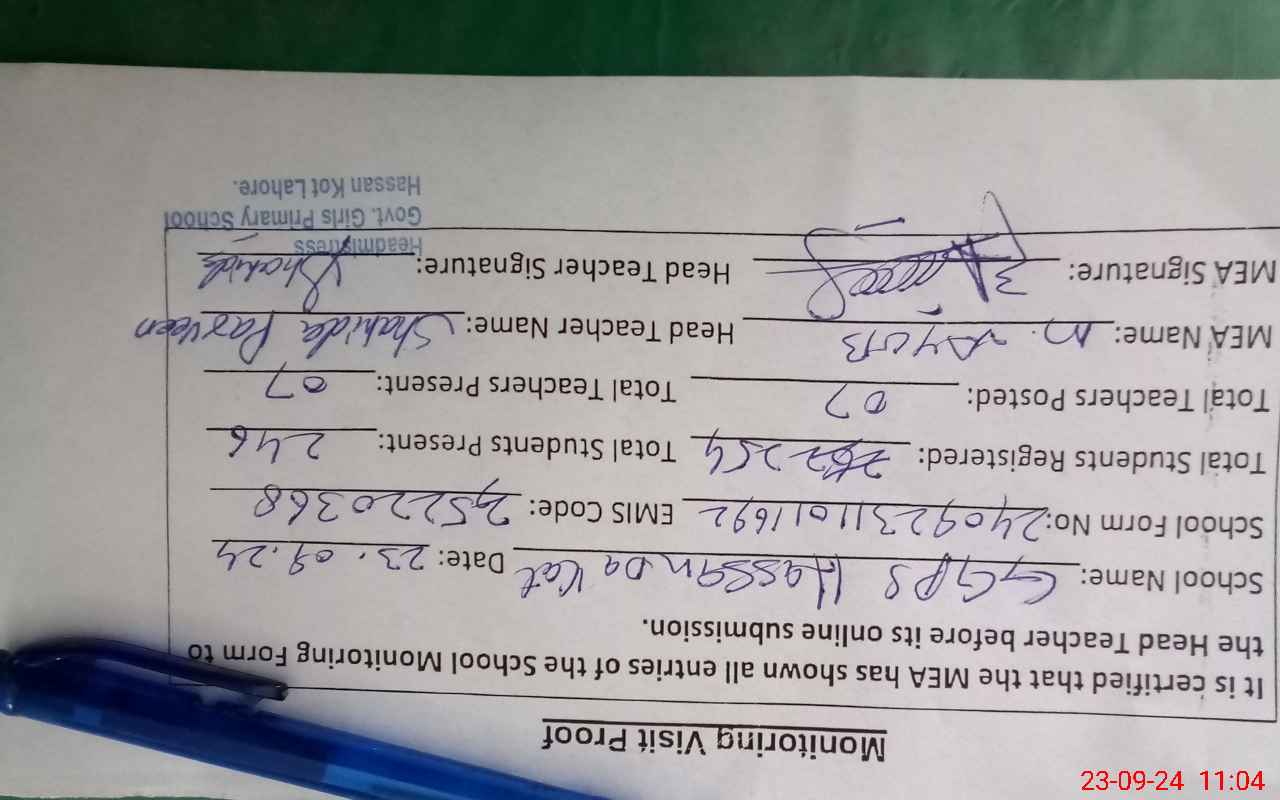 Monitoring Visit Proof
It is certified that the MEA has shown all entries of the School Monitoring Form to
the Head Teacher before its online submission.
School Name: GGPS Hassan Da Kot Date: 23.09.24
School Form No: 24092311011692 EMIS Code: 35220368
Total Students Registered: 254 Total Students Present: 246
Total Teachers Posted: 07 Total Teachers Present: 07
MEA Name: M. Ayub Head Teacher Name: Shahida Parveen
MEA Signature: Head Teacher Signature: Shahida
Headmistress
Govt. Girls Primary School
Hassan Kot Lahore.
23-09-24 11:04